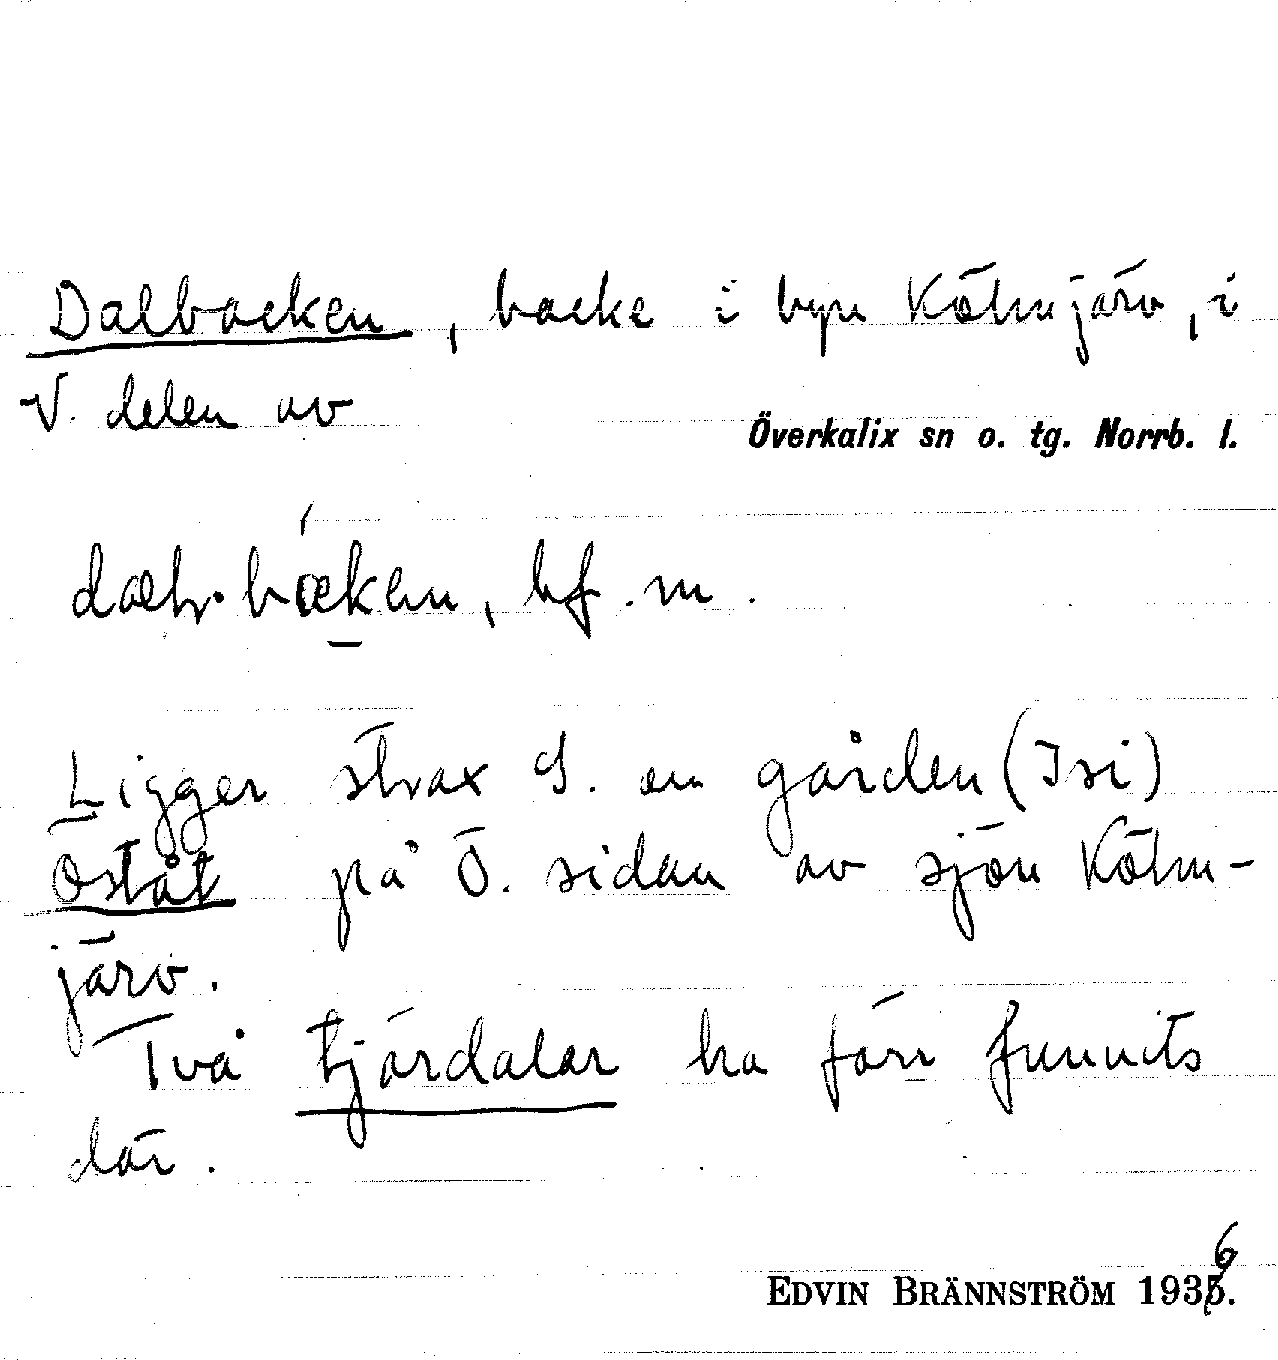 Dalbacken, backe i byn Kölmjärv, i
V. delen av
Överkalix sn o. tg. Norrb. l.
bf. m.
Ligger strax S. om gården (Isi)
Öståt på Ö. sidan av sjön Kölm-
järv.
Två tjärdalar ha förr funnits
där.
EDVIN BRÄNNSTRÖM 1936.